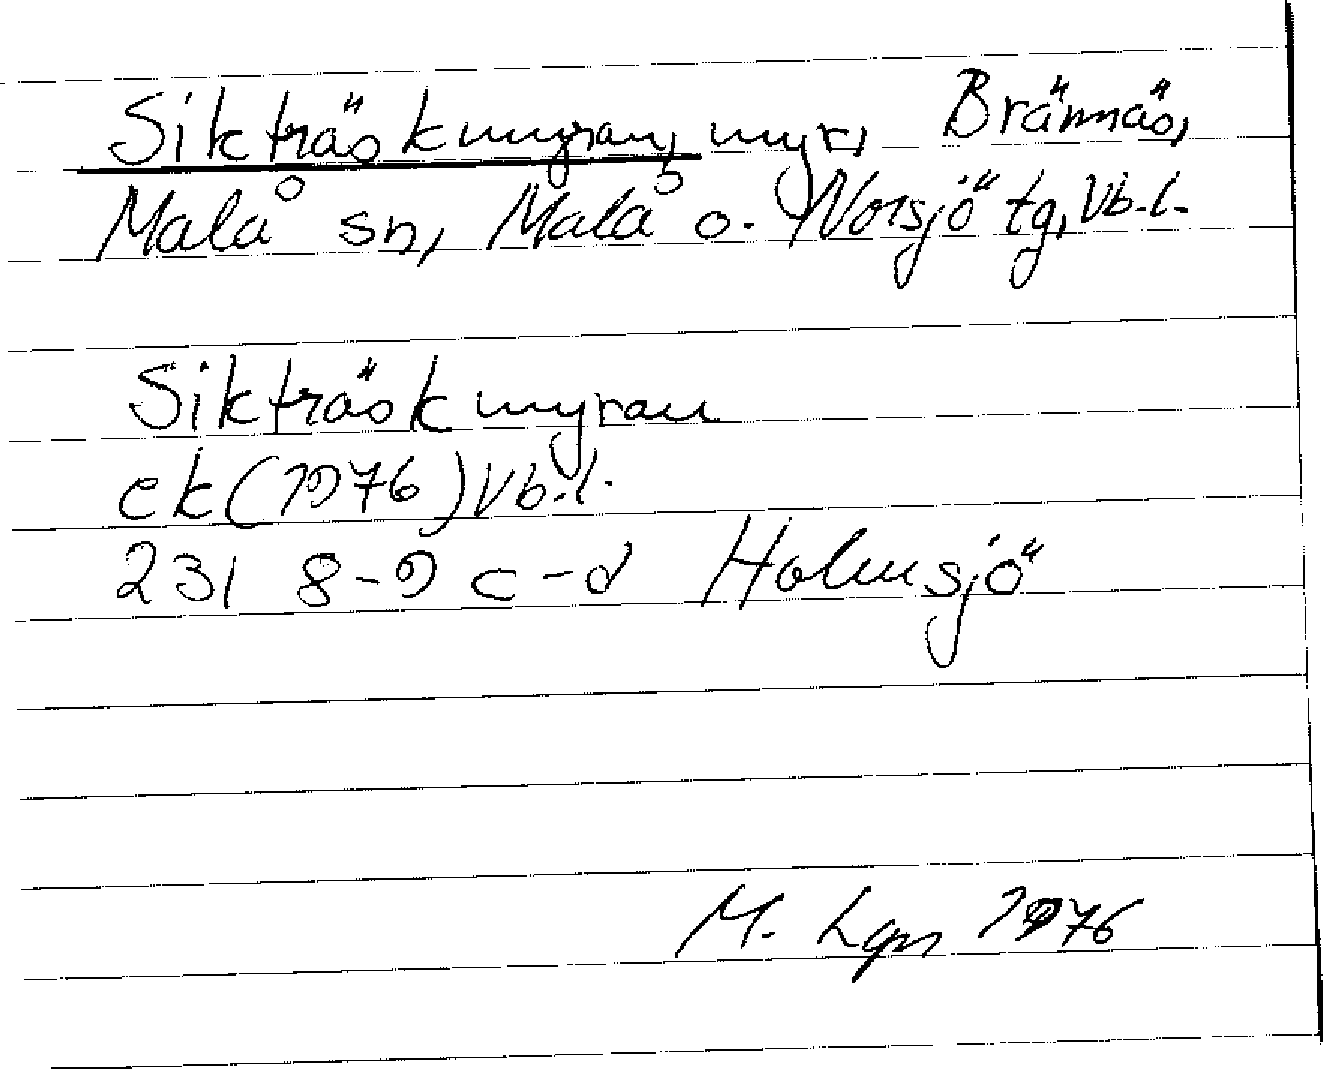 Sikträskmyran, myr, Brännäs,
Malå sn, Malå o. Norsjö tg, Vb.l.
Sikträskmyran
ek (1976) Vb.l.
23I 8-9 c-d Holmsjö
M. Lgn 1976